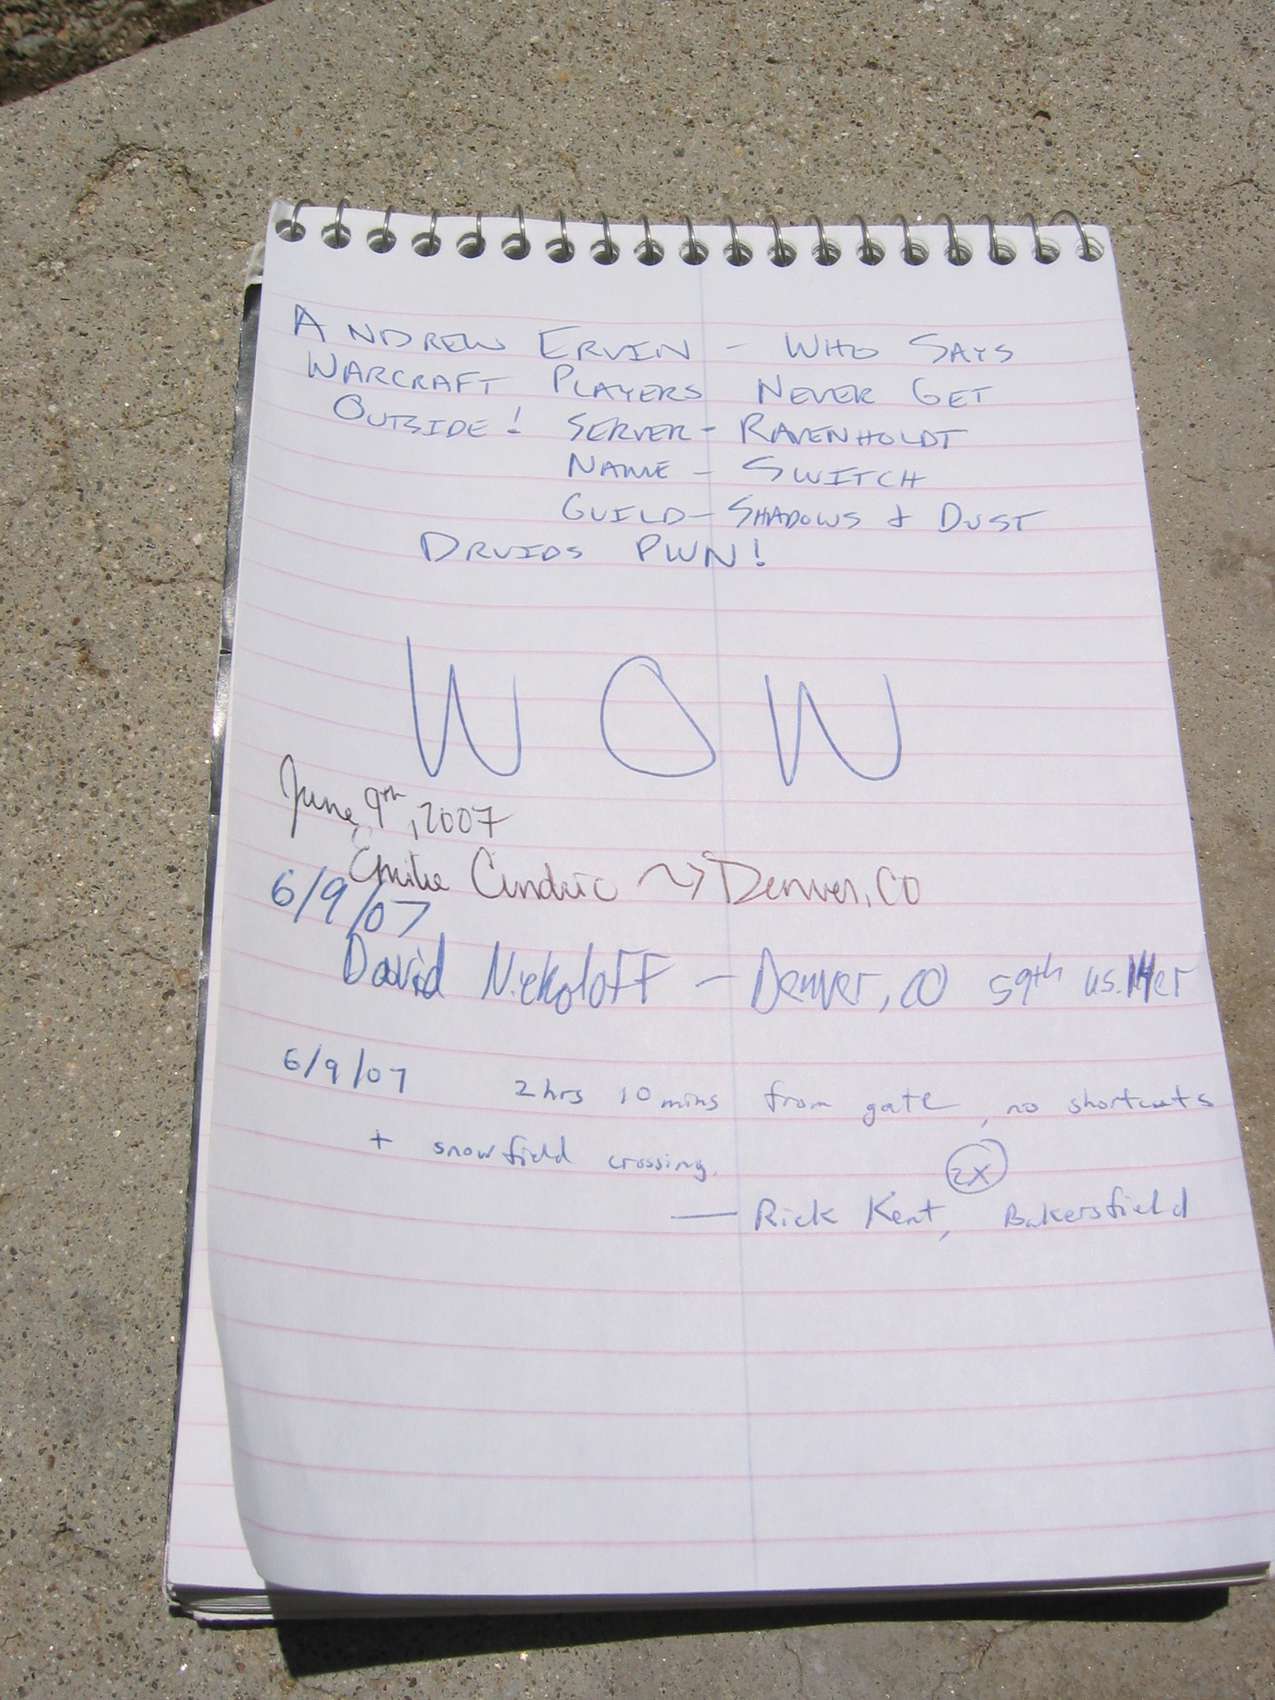 ANDREW ERVIN - WHO SAYS
WARCRAFT PLAYERS NEVER GET
OUTSIDE! SERVER - RAVENHOLDT
NAME - SWITCH
GUILD - SHADOWS & DUST
DRUIDS PWN!
WOW
June 9th, 2007
Denver, CO
6/9/07
David Nickoloff - Denver, CO 59th
6/9/07 2 hrs 10 mins from gate, no shortcuts
+ snowfield crossing.
2X
— Rick Kent, Bakersfield